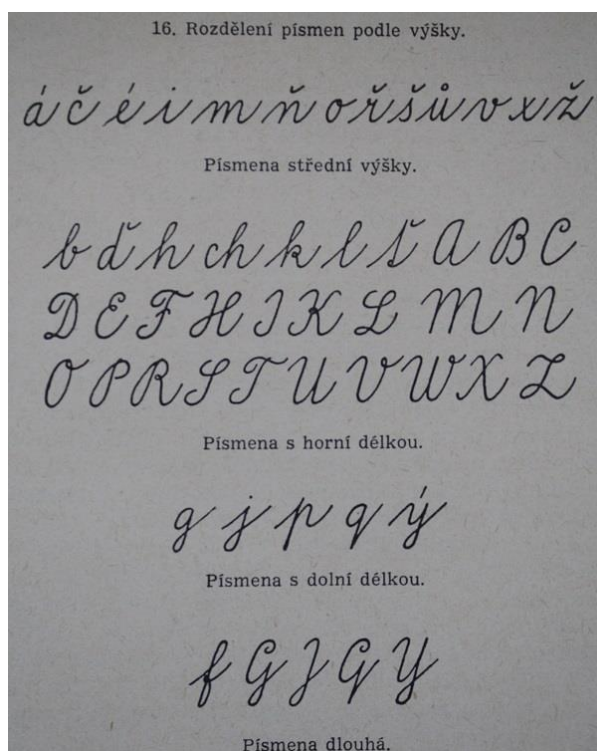 16. Rozdělení písmen podle výšky.
á č é i m ň o ř š ů v x ž
Písmena střední výšky.
b ď h ch k l ť A B C
D E F H I K L M N
O P R S T U V W X Z
Písmena s horní délkou.
g j p q ý
Písmena s dolní délkou.
f G J Q Y
Písmena dlouhá.